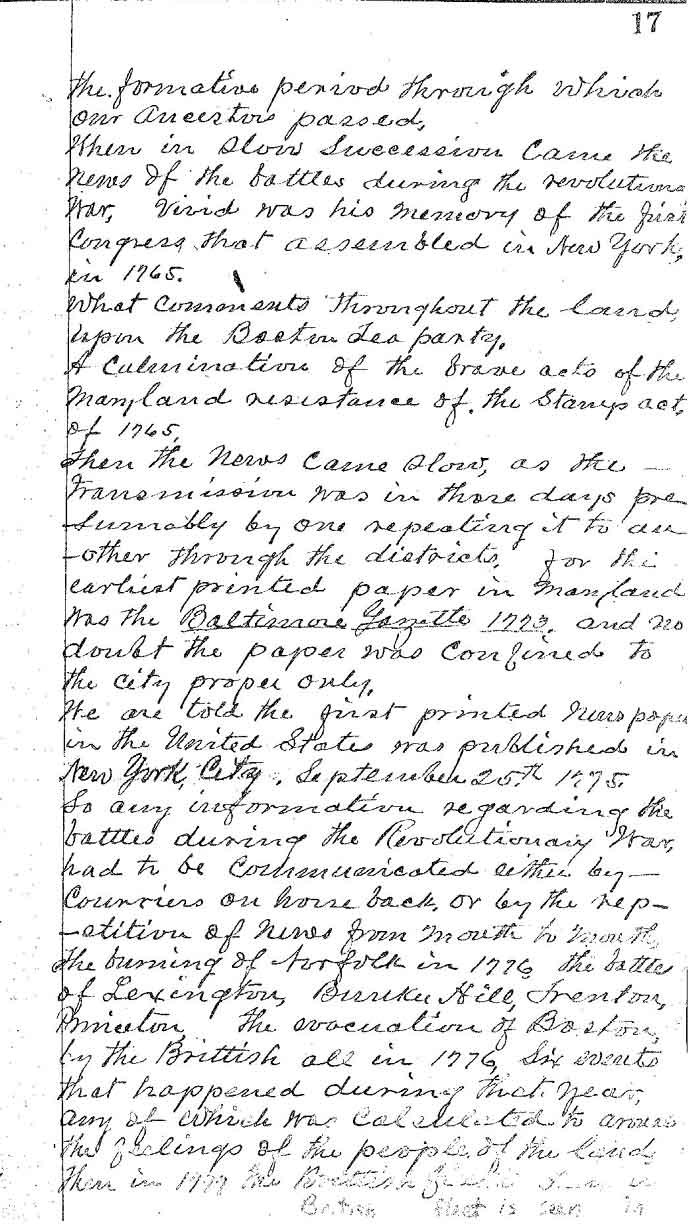 17
the formative period through which
our Ancestors passed,
When in slow succession came the
News of the battles during the revolutiona
War, Vivid was his memory of the first
Congress that assembled in New York,
in 1765.
What comments throughout the land,
upon the Boston Tea party,
A culmination of the brave acts of the
Maryland resistance of the Stamp act,
of 1765,
then the News came slow, as the —
transmission was in those days pre
-sumably by one repeating it to an
-other through the districts, for the
earliest printed paper in Maryland
was the Baltimore Gazette 1773, and no
doubt the paper was confined to
the city proper only,
We are told the first printed News paper
in the United States was published in
New York, City, September 25th 1775.
So any information regarding the
battles during the Revolutionary War,
had to be communicated either by —
Couriers on horse back, or by the rep-
-etition of News from mouth to mouth,
the burning of Norfolk in 1776, the battles
of Lexington, Bunker Hill, Trenton,
Princeton, the evacuation of Boston,
by the Brittish all in 1776, Six events
that happened during that Year,
any of which was calculated to arouse
the feelings of the people of the land,
then in 1777 the Brittish
British fleet is seen in